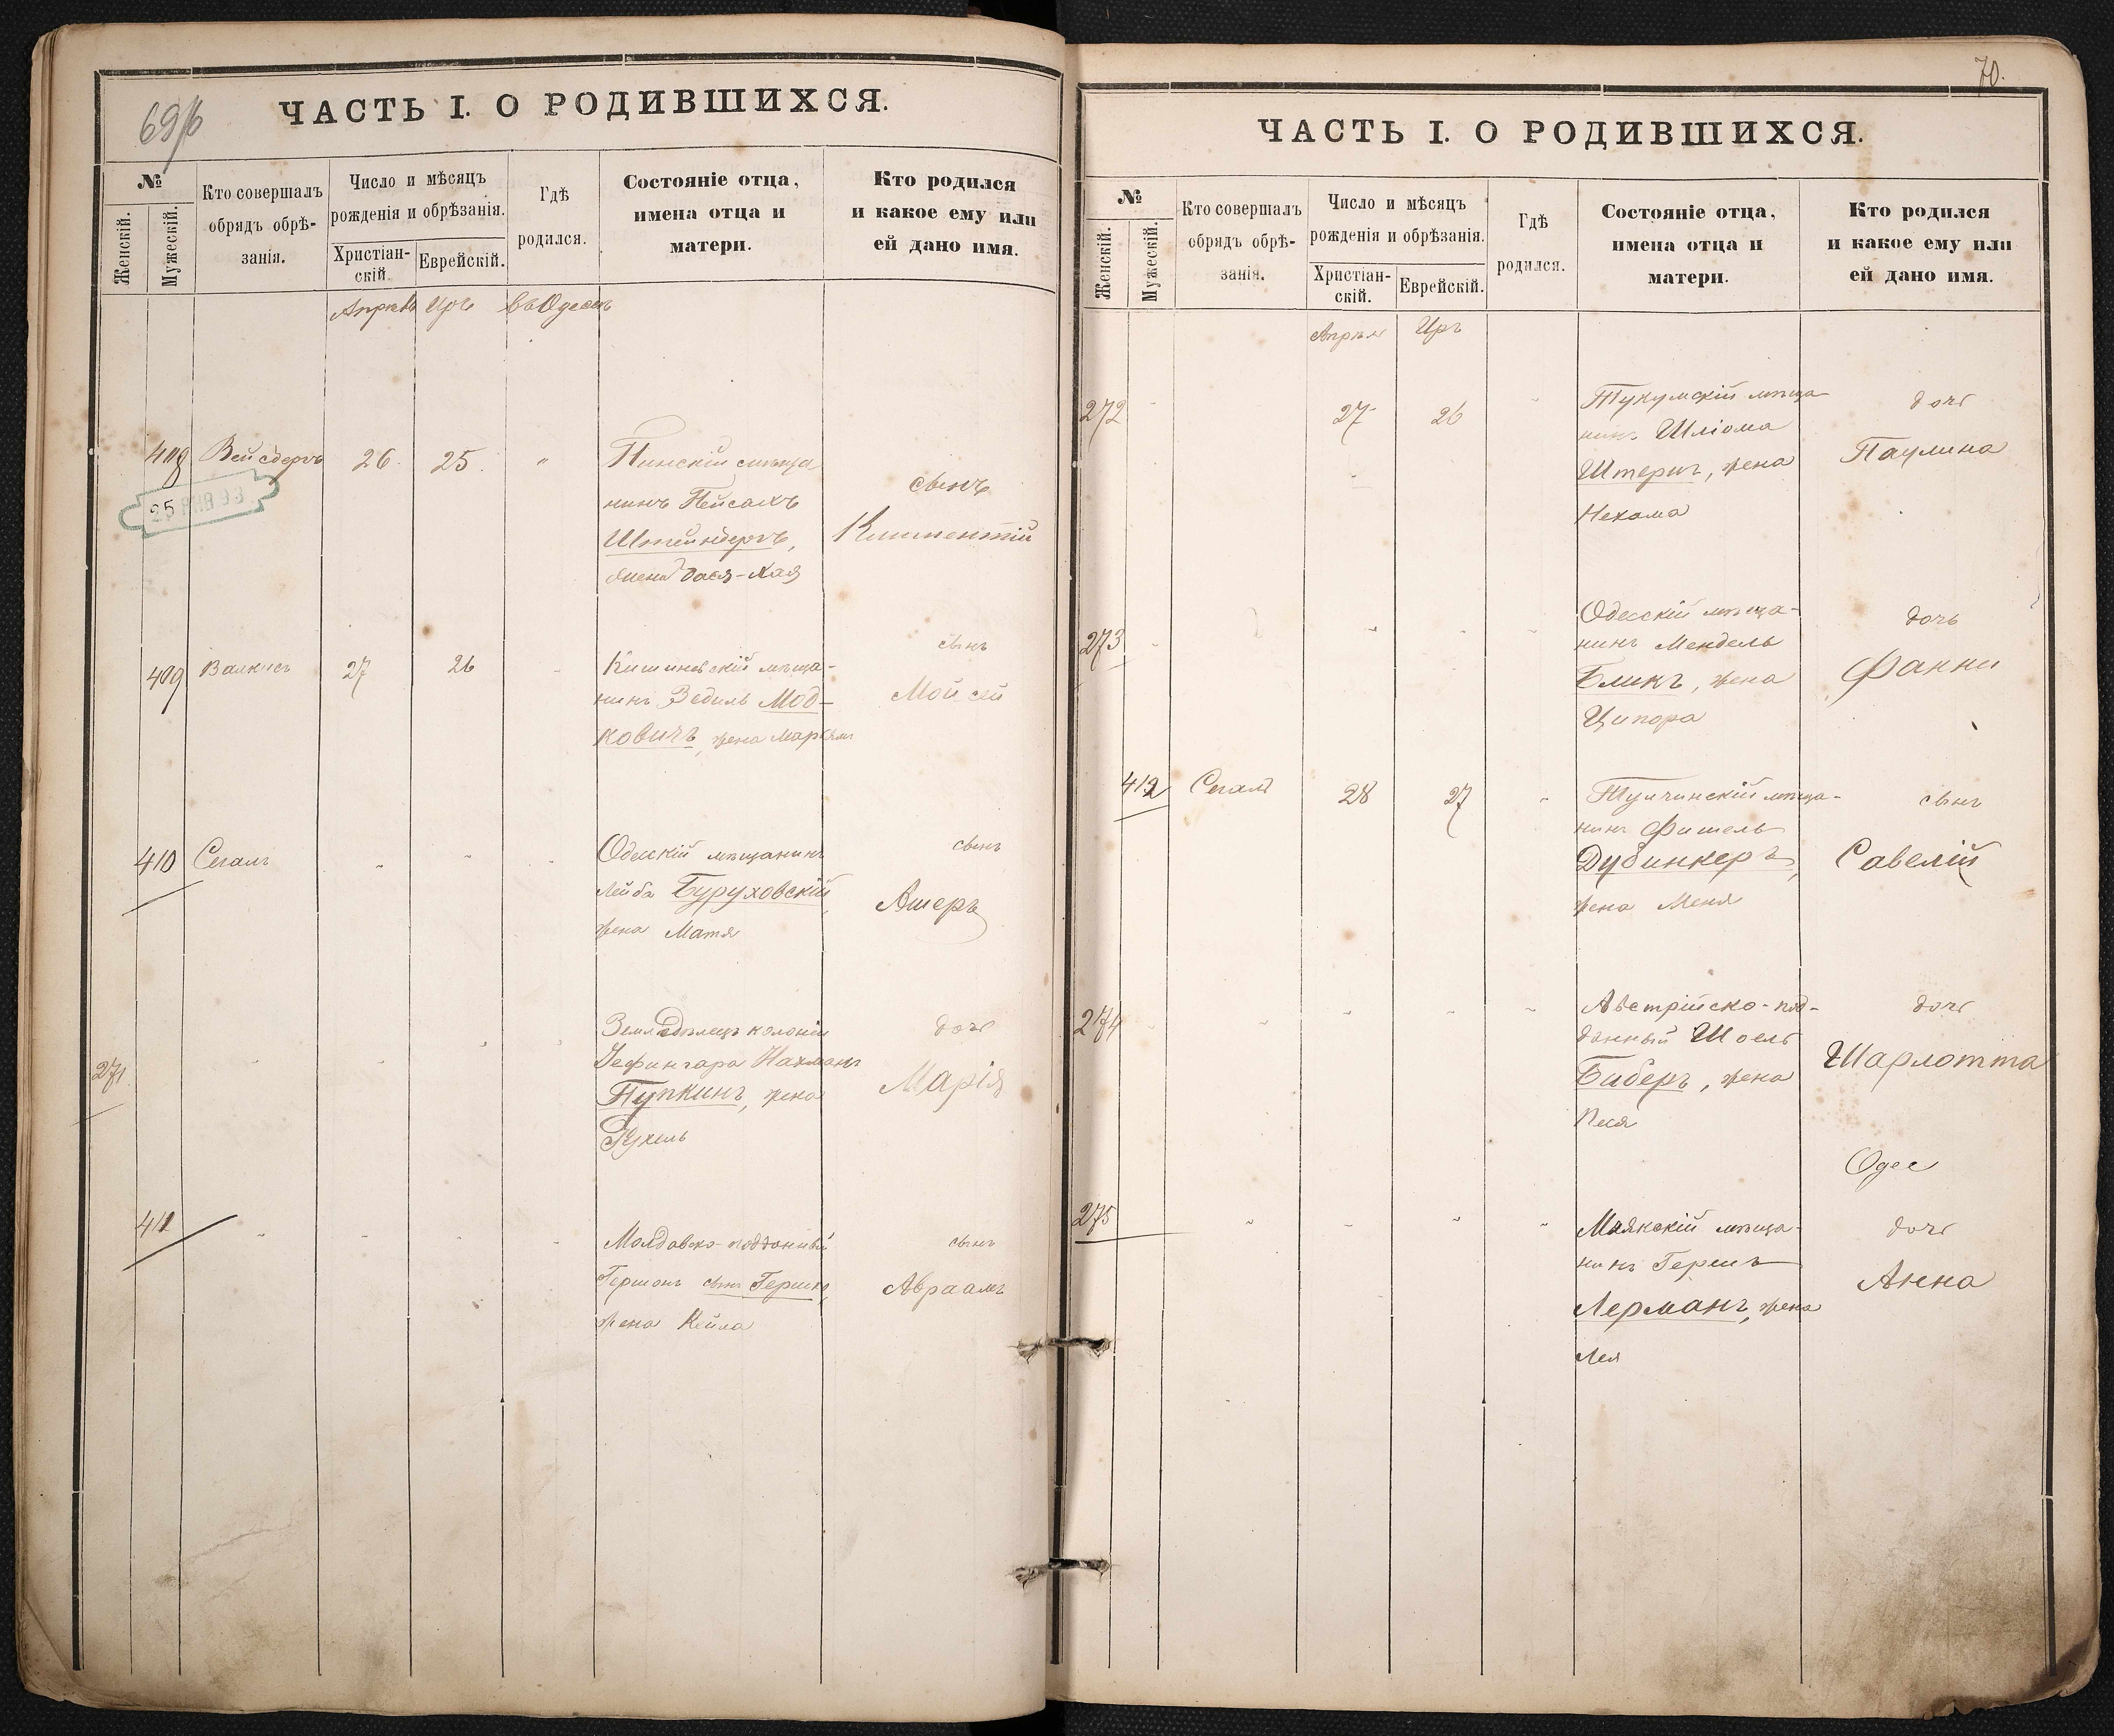 69/б
ЧАСТЬ I. О РОДИВШИХСЯ.
№
Женскій.
Мужескій.
Кто совершалъ
обрядъ обрѣ-
занія.
Число и мѣсяцъ
рожденія и обрѣзанія.
Христіан-
скій.
Еврейскій.
Гдѣ
родился.
Состояніе отца,
имена отца и
матери.
Кто родился
и какое ему или
ей дано имя.
Апрѣль Иръ въ Одессѣ
408 26 25 "
Пинскій мѣща
нинъ Пейсахъ
жена Бася-Хая
сынъ
Климентій
25 ЯНВ 93
409 Валкисъ 27 26
Кишиневскій мѣща-
нинъ Зейдиль Мод-
ковичъ, жена Марьямъ
сынъ
Мойсей
410 Сегалъ " " "
Одесскій мѣщанинъ
Лейба Буруховскій,
жена Матя
сынъ
Ашеръ
271 " " " "
Земледѣлецъ колоніи
Нахманъ
Пупкинъ, жена
Рухель
дочь
Марія
411 " " " "
Молдавско-подданный
Гершонъ сынъ Гершко,
жена Кейла
сынъ
Авраамъ
70.
ЧАСТЬ I. О РОДИВШИХСЯ.
№
Женскій.
Мужескій.
Кто совершалъ
обрядъ обрѣ-
занія.
Число и мѣсяцъ
рожденія и обрѣзанія.
Христіан-
скій.
Еврейскій.
Гдѣ
родился.
Состояніе отца,
имена отца и
матери.
Кто родился
и какое ему или
ей дано имя.
Апрѣль Иръ
272 " 27 26 "
Тукумскій мѣща
нинъ Шліома
Штернъ, жена
Нехама
дочь
Паулина
273 " " " "
Одесскій мѣща-
нинъ Мендель
Бликъ, жена
Ципора
дочь
Фанни
412 Сегалъ 28 27 "
Тульчинскій мѣща-
нинъ Фишель
Дубинкеръ,
жена Меня
сынъ
Савелій
274 " " " "
Австрійско-под-
данный Шоель
Биберъ, жена
Песя
дочь
Шарлотта
Одес
275 " " " "
Маякскій мѣща-
нинъ Гершъ
Лерманъ, жена
Лея
дочь
Анна